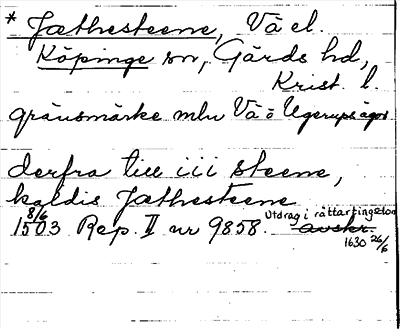 * Jæthesteene, Vä el.
Köpinge sn, Gärds hd,
Krist. l.
gränsmärke mln Vä o Ugerups ägor
derfra till iii steene,
kaldis Jæthesteene
8/6 1503 Rep. II nr 9858. Utdrag i rättartingsdom
avskr.
1630 26/6